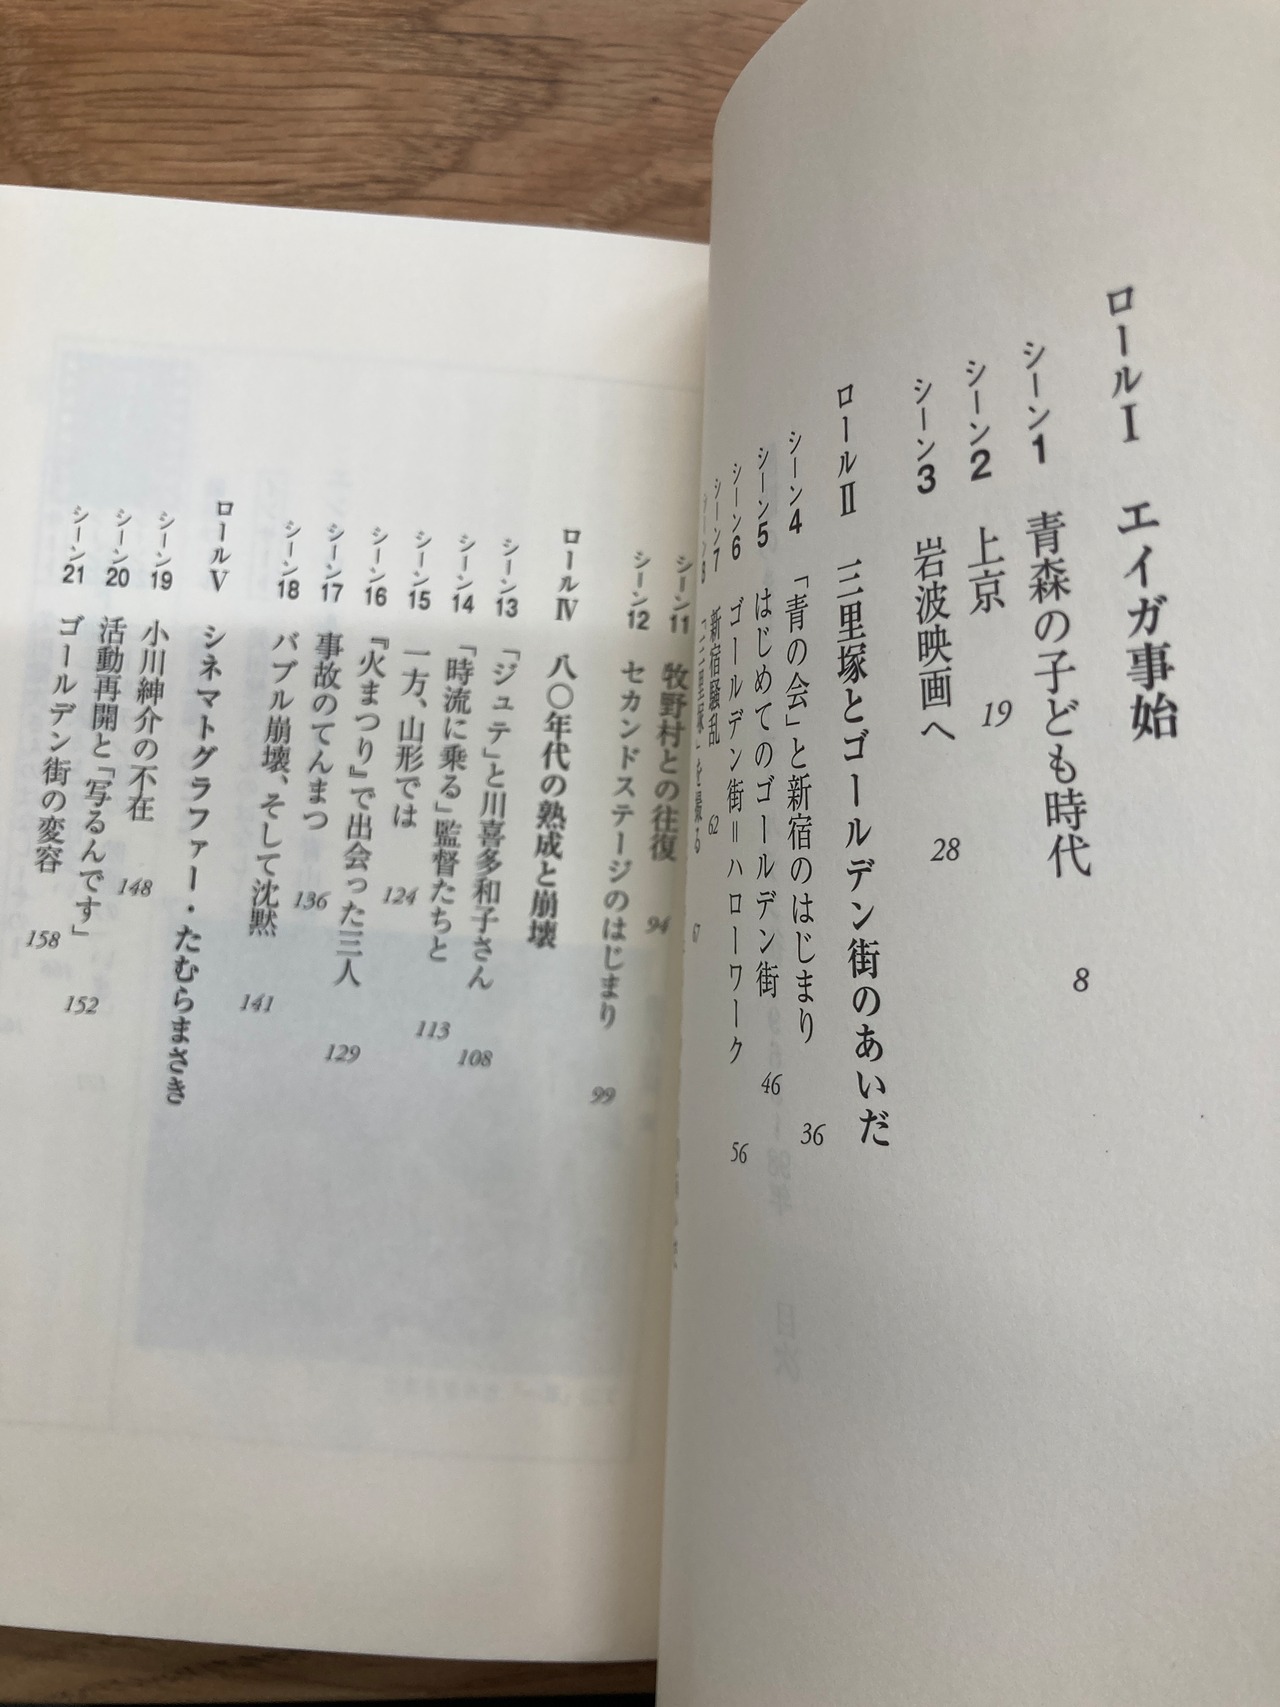 ロールⅠ エイガ事始
シーン1 青森の子ども時代 8
シーン2 上京 19
シーン3 岩波映画へ 28
ロールⅡ 三里塚とゴールデン街のあいだ
シーン4 「青の会」と新宿のはじまり 36
シーン5 はじめてのゴールデン街 46
シーン6 ゴールデン街＝ハローワーク 56
シーン7 新宿騒乱 62
シーン8 「三里塚」を撮る 67
シーン11 牧野村との往復 94
シーン12 セカンドステージのはじまり 99
ロールⅣ 八〇年代の熟成と崩壊
シーン13 「ジュテ」と川喜多和子さん 108
シーン14 「時流に乗る」監督たちと 113
シーン15 一方、山形では 124
シーン16 『火まつり』で出会った三人 129
シーン17 事故のてんまつ 136
シーン18 バブル崩壊、そして沈黙 141
ロールⅤ シネマトグラファー・たむらまさき
シーン19 小川紳介の不在 148
シーン20 活動再開と「写るんです」 152
シーン21 ゴールデン街の変容 158